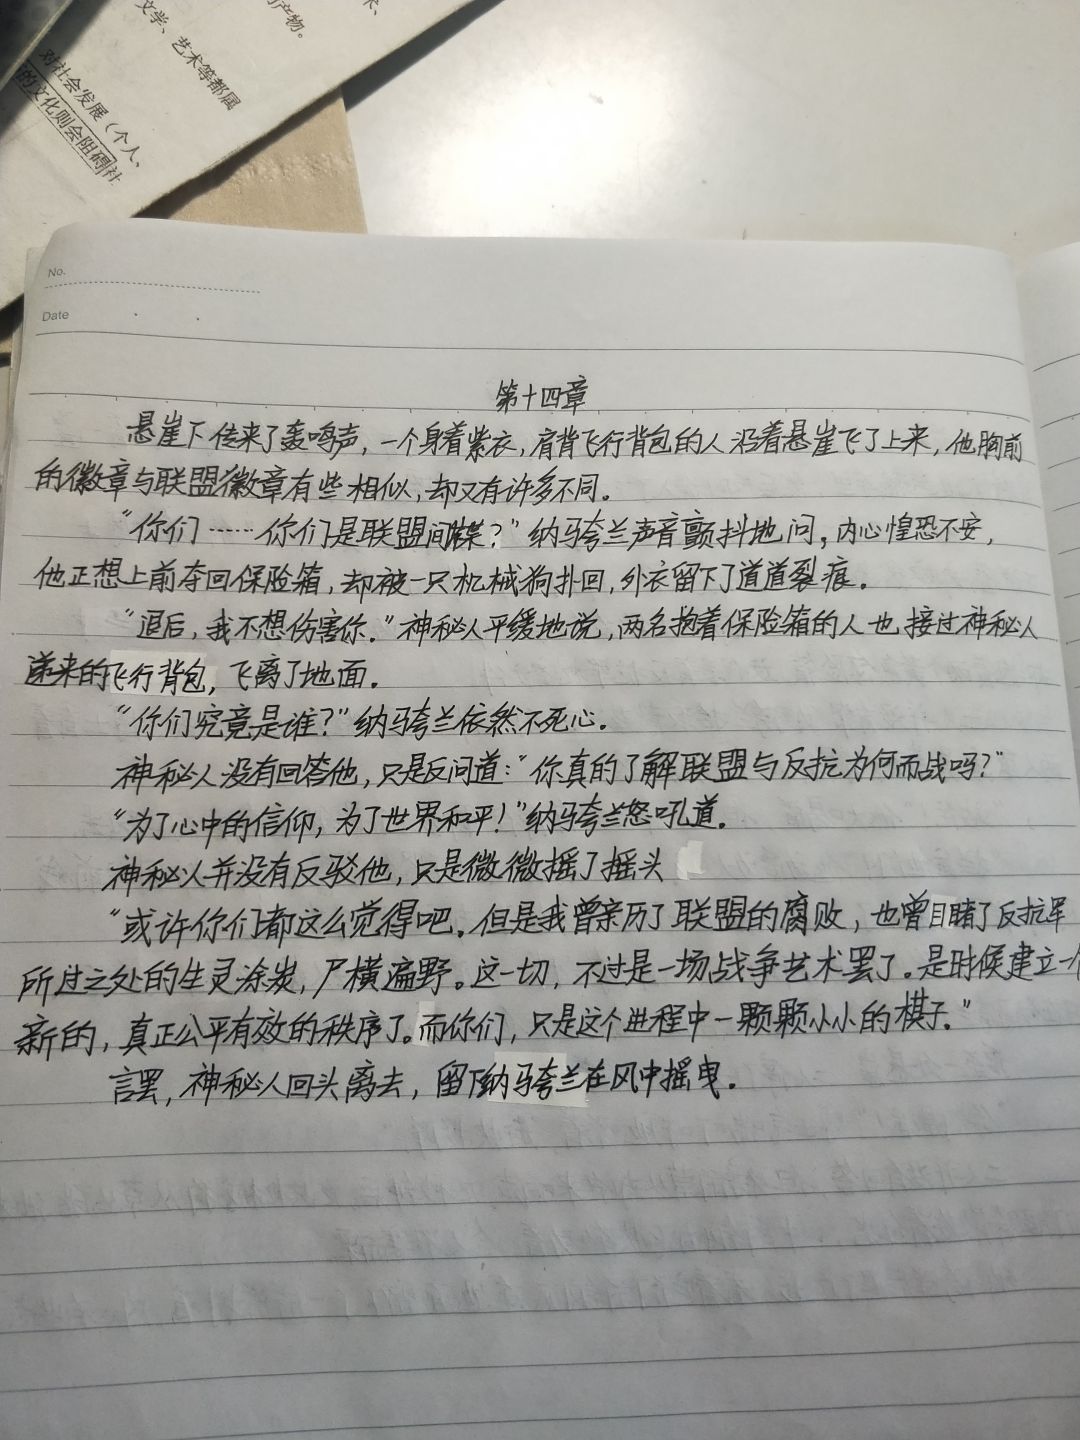 术、
的产物。
文学、艺术等都属
对社会发展(个人、
的文化则会阻碍社
No.
Date
第十四章
悬崖下传来了轰鸣声,一个身着紫衣,肩背飞行背包的人沿着悬崖飞了上来,他胸前
的徽章与联盟徽章有些相似,却又有许多不同。
“你们……你们是联盟间谍?”纳马夸兰声音颤抖地问,内心惶恐不安,
他正想上前夺回保险箱,却被一只机械狗扑回,外衣留下了道道裂痕。
“退后,我不想伤害你。”神秘人平缓地说,两名抱着保险箱的人也接过神秘人
递来的飞行背包,飞离了地面。
“你们究竟是谁?”纳马夸兰依然不死心。
神秘人没有回答他,只是反问道:“你真的了解联盟与反抗为何而战吗?”
“为了心中的信仰,为了世界和平!”纳马夸兰怒吼道。
神秘人并没有反驳他,只是微微摇了摇头
“或许你们都这么觉得吧。但是我曾亲历了联盟的腐败,也曾目睹了反抗军
所过之处的生灵涂炭,尸横遍野。这一切,不过是一场战争艺术罢了。是时候建立一个
新的,真正公平有效的秩序了。而你们,只是这个进程中一颗颗小小的棋子。”
言罢,神秘人回头离去,留下纳马夸兰在风中摇曳。